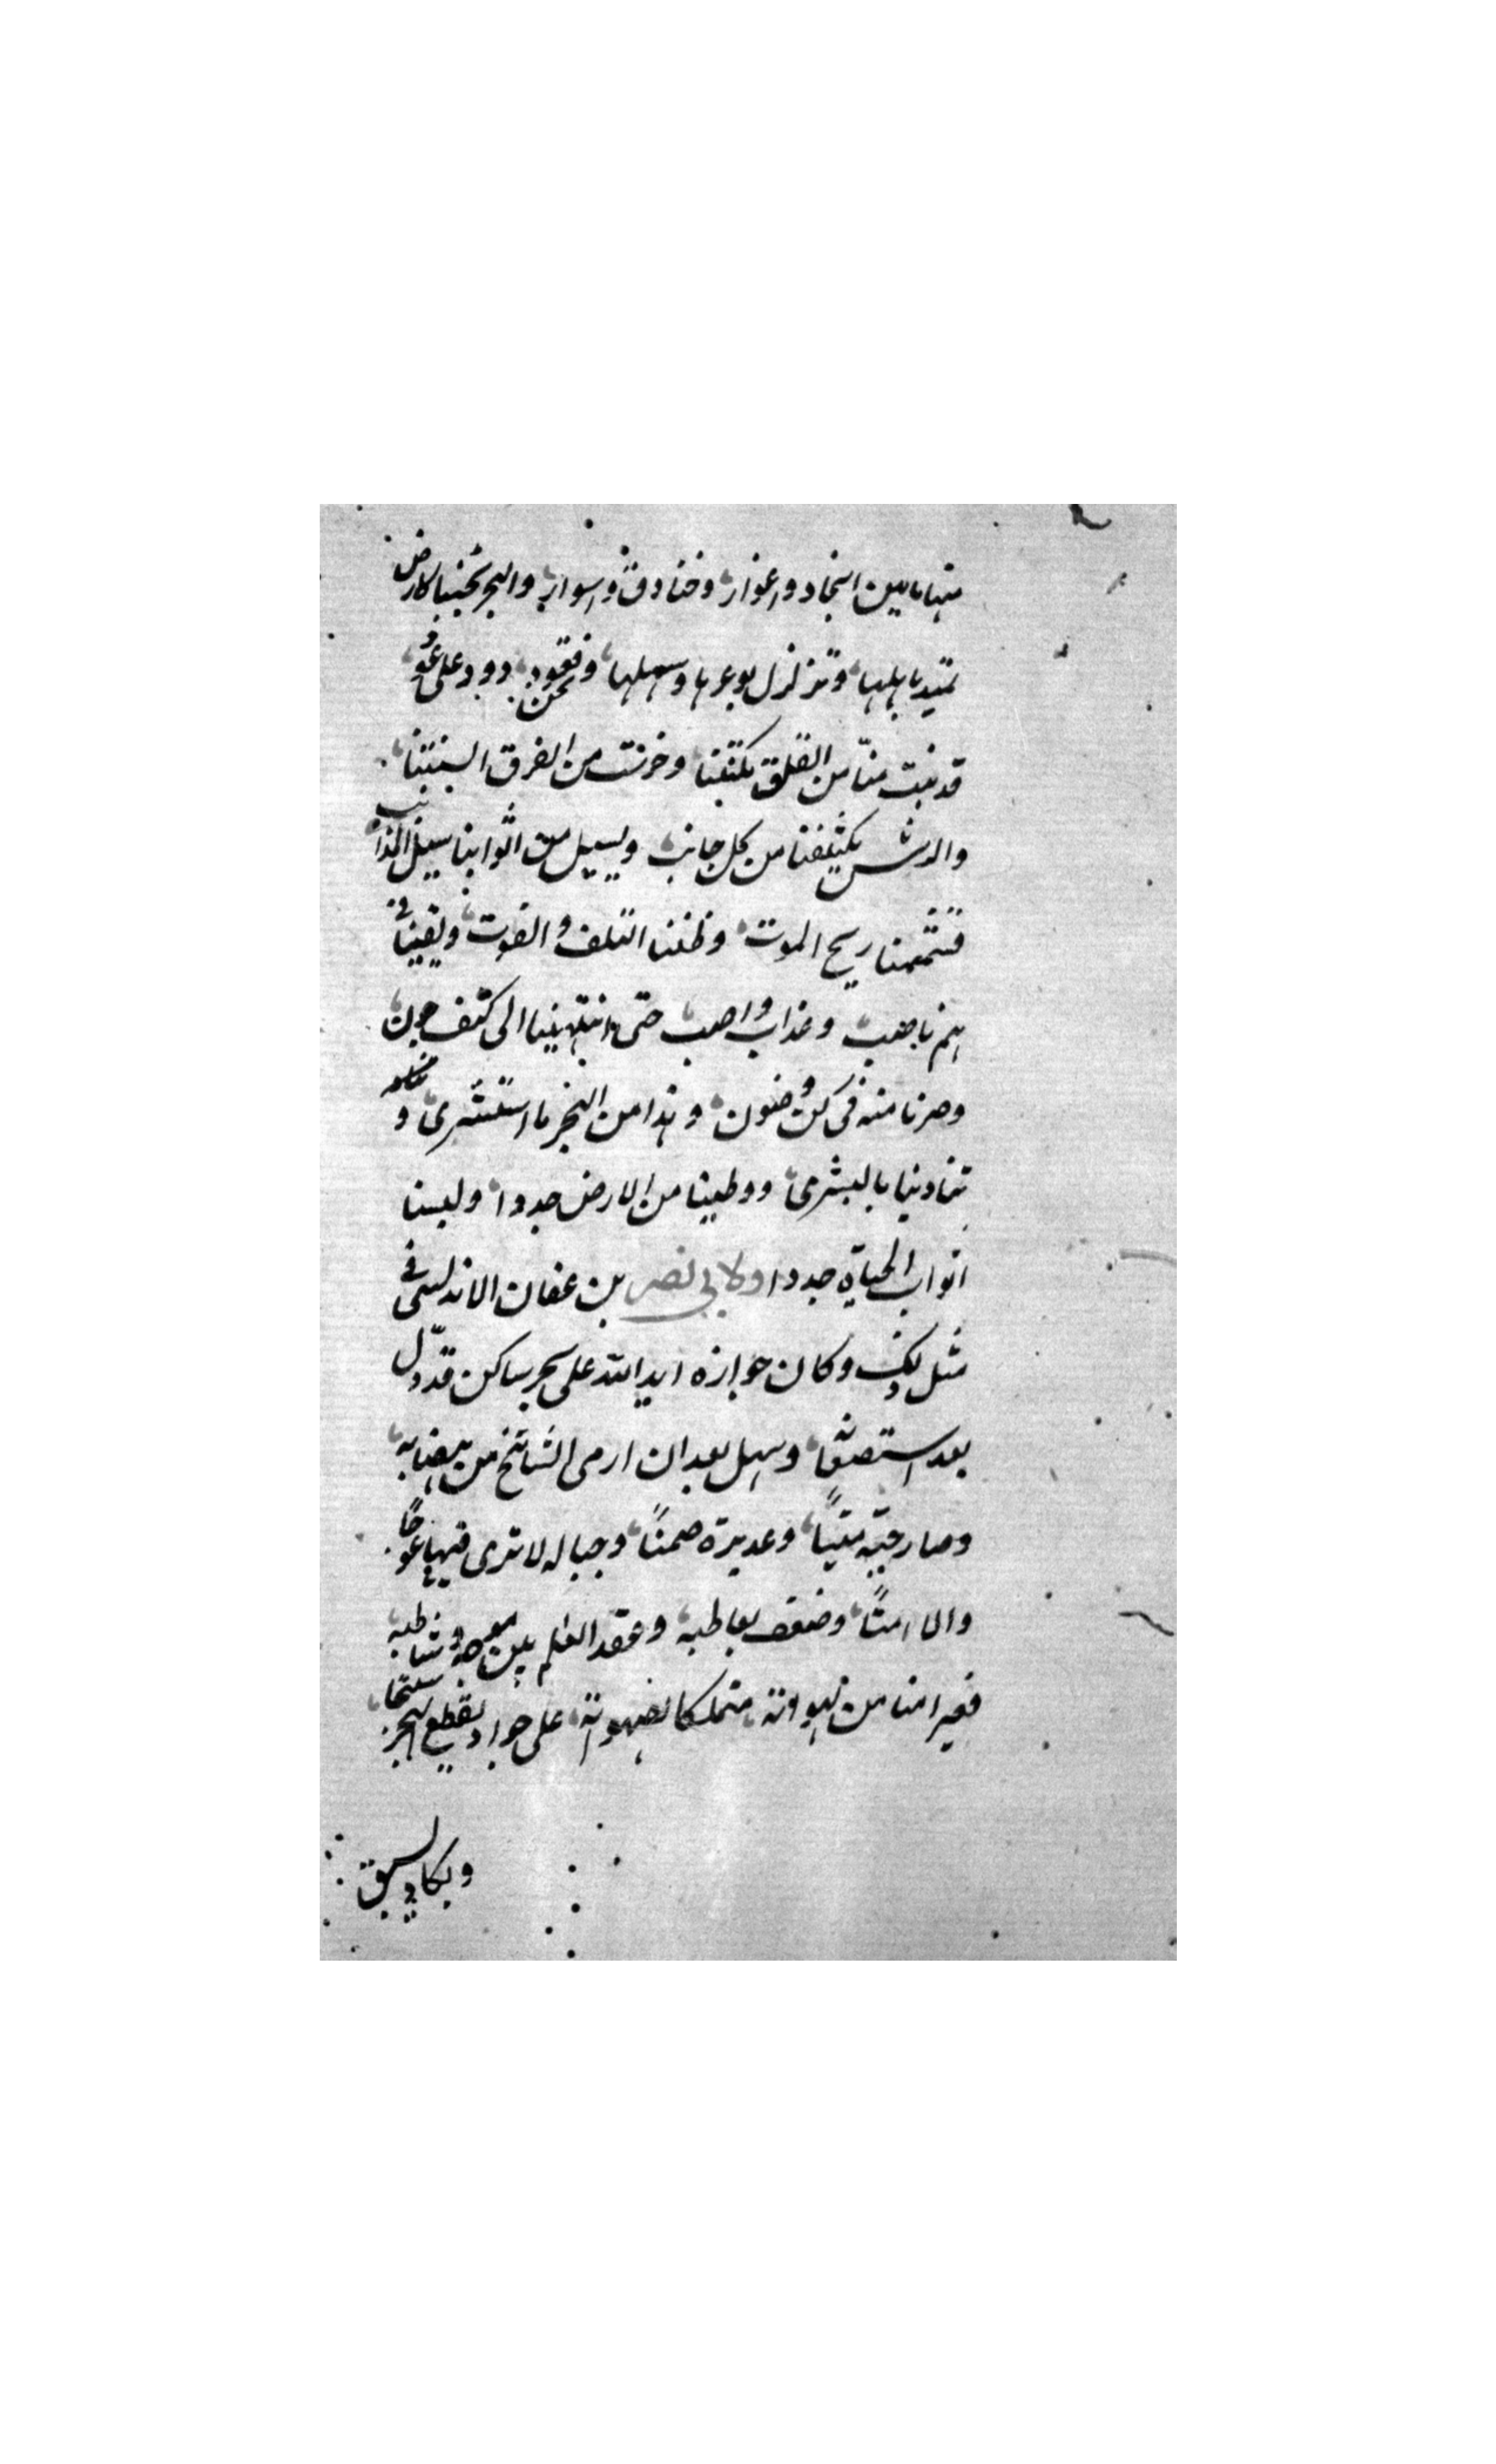 منها ما بين انجاد واغوار وخنادق واسوار والبحر تحتنا كارض
تميد باهلها وتزلزل بوعرها وسهلها ونحن قعود دود على عود
قد نبت منا من القلق مكتفنا وخرست من الفرق السنتنا
والرش يكتنفنا من كل جانب ويسيل من اثوابنا سيل المذانب
فشممنا ريح الموت وظننا التلف والفوت وبقينا في
هم ناصب وعذاب واصب حتى انتهينا الى كنف جون
وصرنا منه في كن صون وهدا من البحر ما استشرى و
تنادينا بالبشرى ووطينا من الارض جددا ولبسنا
اثواب الحياة جددا ولابي نصر بن عفان الاندلسي في
مثل ذلك وكان جوازه ايد الله على بحر ساكن قد ذل
بعد استصعابه وسهل بعد ان ارى الشامخ من هضابه
وصار حيه ميتا وهديره صمتا وجباله لا ترى فيها عوجا
ولا امتا وضعف تعاطيه وعقد السلم بين موجه وشاطيه
فعبر امنا من لهواته متملكا لصهواته على جواد يقطع البحر سبحا
ويكاد يسبق